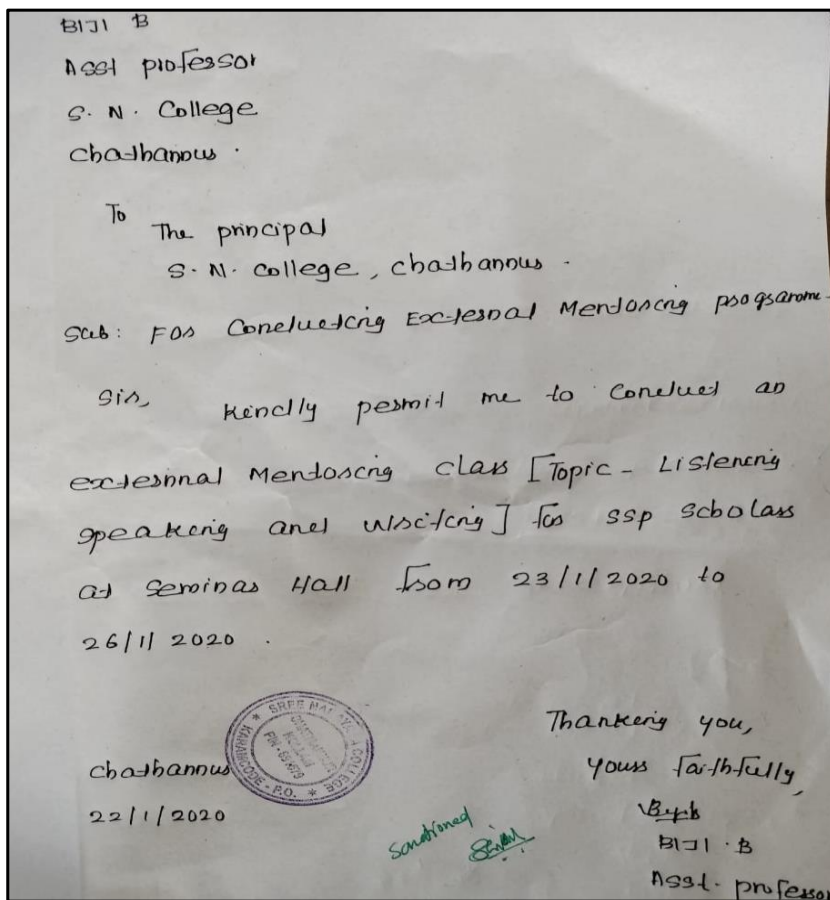 BIJI B
Asst professor
S. N. College
Chathannur.
To
The principal
S. N. College, Chathannur.
Sub: For Conducting External Mentoring programme.
Sir,
Kindly permit me to Conduct an
external Mentoring Class [Topic - Listening
speaking and writing] for SSP Scholars
at Seminar Hall from 23/1/2020 to
26/1/2020.
SREE NARAYANA COLLEGE
KARAMCODE - P.O.
Chathannur
22/1/2020
Sanctioned
Thanking you,
yours faithfully,
BIJI. B
Asst. professor